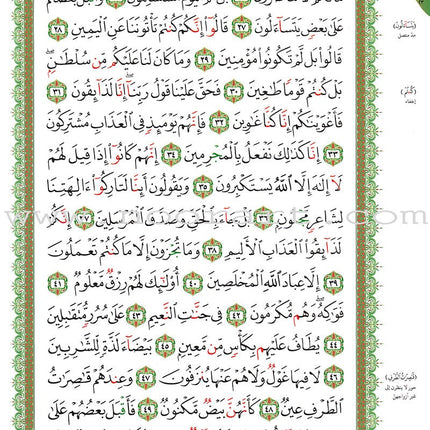 عَلَىٰ بَعْضٍ يَتَسَآءَلُونَ ٢٧ قَالُوٓا۟ إِنَّكُمْ كُنتُمْ تَأْتُونَنَا عَنِ ٱلْيَمِينِ ٢٨
قَالُوا۟ بَل لَّمْ تَكُونُوا۟ مُؤْمِنِينَ ٢٩ وَمَا كَانَ لَنَا عَلَيْكُم مِّن سُلْطَـٰنٍۭ ۖ
بَلْ كُنتُمْ قَوْمًا طَـٰغِينَ ٣٠ فَحَقَّ عَلَيْنَا قَوْلُ رَبِّنَآ ۖ إِنَّا لَذَآئِقُونَ ٣١
فَأَغْوَيْنَـٰكُمْ إِنَّا كُنَّا غَـٰوِينَ ٣٢ فَإِنَّهُمْ يَوْمَئِذٍ فِى ٱلْعَذَابِ مُشْتَرِكُونَ
٣٣ إِنَّا كَذَٰلِكَ نَفْعَلُ بِٱلْمُجْرِمِينَ ٣٤ إِنَّهُمْ كَانُوٓا۟ إِذَا قِيلَ لَهُمْ
لَآ إِلَـٰهَ إِلَّا ٱللَّهُ يَسْتَكْبِرُونَ ٣٥ وَيَقُولُونَ أَئِنَّا لَتَارِكُوٓا۟ ءَالِهَتِنَا
لِشَاعِرٍ مَّجْنُونٍۭ ٣٦ بَلْ جَآءَ بِٱلْحَقِّ وَصَدَّقَ ٱلْمُرْسَلِينَ ٣٧ إِنَّكُمْ
لَذَآئِقُوا۟ ٱلْعَذَابِ ٱلْأَلِيمِ ٣٨ وَمَا تُجْزَوْنَ إِلَّا مَا كُنتُمْ تَعْمَلُونَ
٣٩ إِلَّا عِبَادَ ٱللَّهِ ٱلْمُخْلَصِينَ ٤٠ أُو۟لَـٰٓئِكَ لَهُمْ رِزْقٌ مَّعْلُومٌ ٤١
فَوَٰكِهُ ۖ وَهُم مُّكْرَمُونَ ٤٢ فِى جَنَّـٰتِ ٱلنَّعِيمِ ٤٣ عَلَىٰ سُرُرٍ مُّتَقَـٰبِلِينَ
٤٤ يُطَافُ عَلَيْهِم بِكَأْسٍ مِّن مَّعِينٍۭ ٤٥ بَيْضَآءَ لَذَّةٍ لِّلشَّـٰرِبِينَ
٤٦ لَا فِيهَا غَوْلٌ وَلَا هُمْ عَنْهَا يُنزَفُونَ ٤٧ وَعِندَهُمْ قَـٰصِرَٰتُ
ٱلطَّرْفِ عِينٌ ٤٨ كَأَنَّهُنَّ بَيْضٌ مَّكْنُونٌ ٤٩ فَأَقْبَلَ بَعْضُهُمْ عَلَىٰ
(يَتَسَآءَلُونَ)
مدّ متصل
(كُنتُمْ)
إخفاء
(قَـٰصِرَٰتُ ٱلطَّرْفِ)
حور لا ينظرن إلى
غير أزواجهن